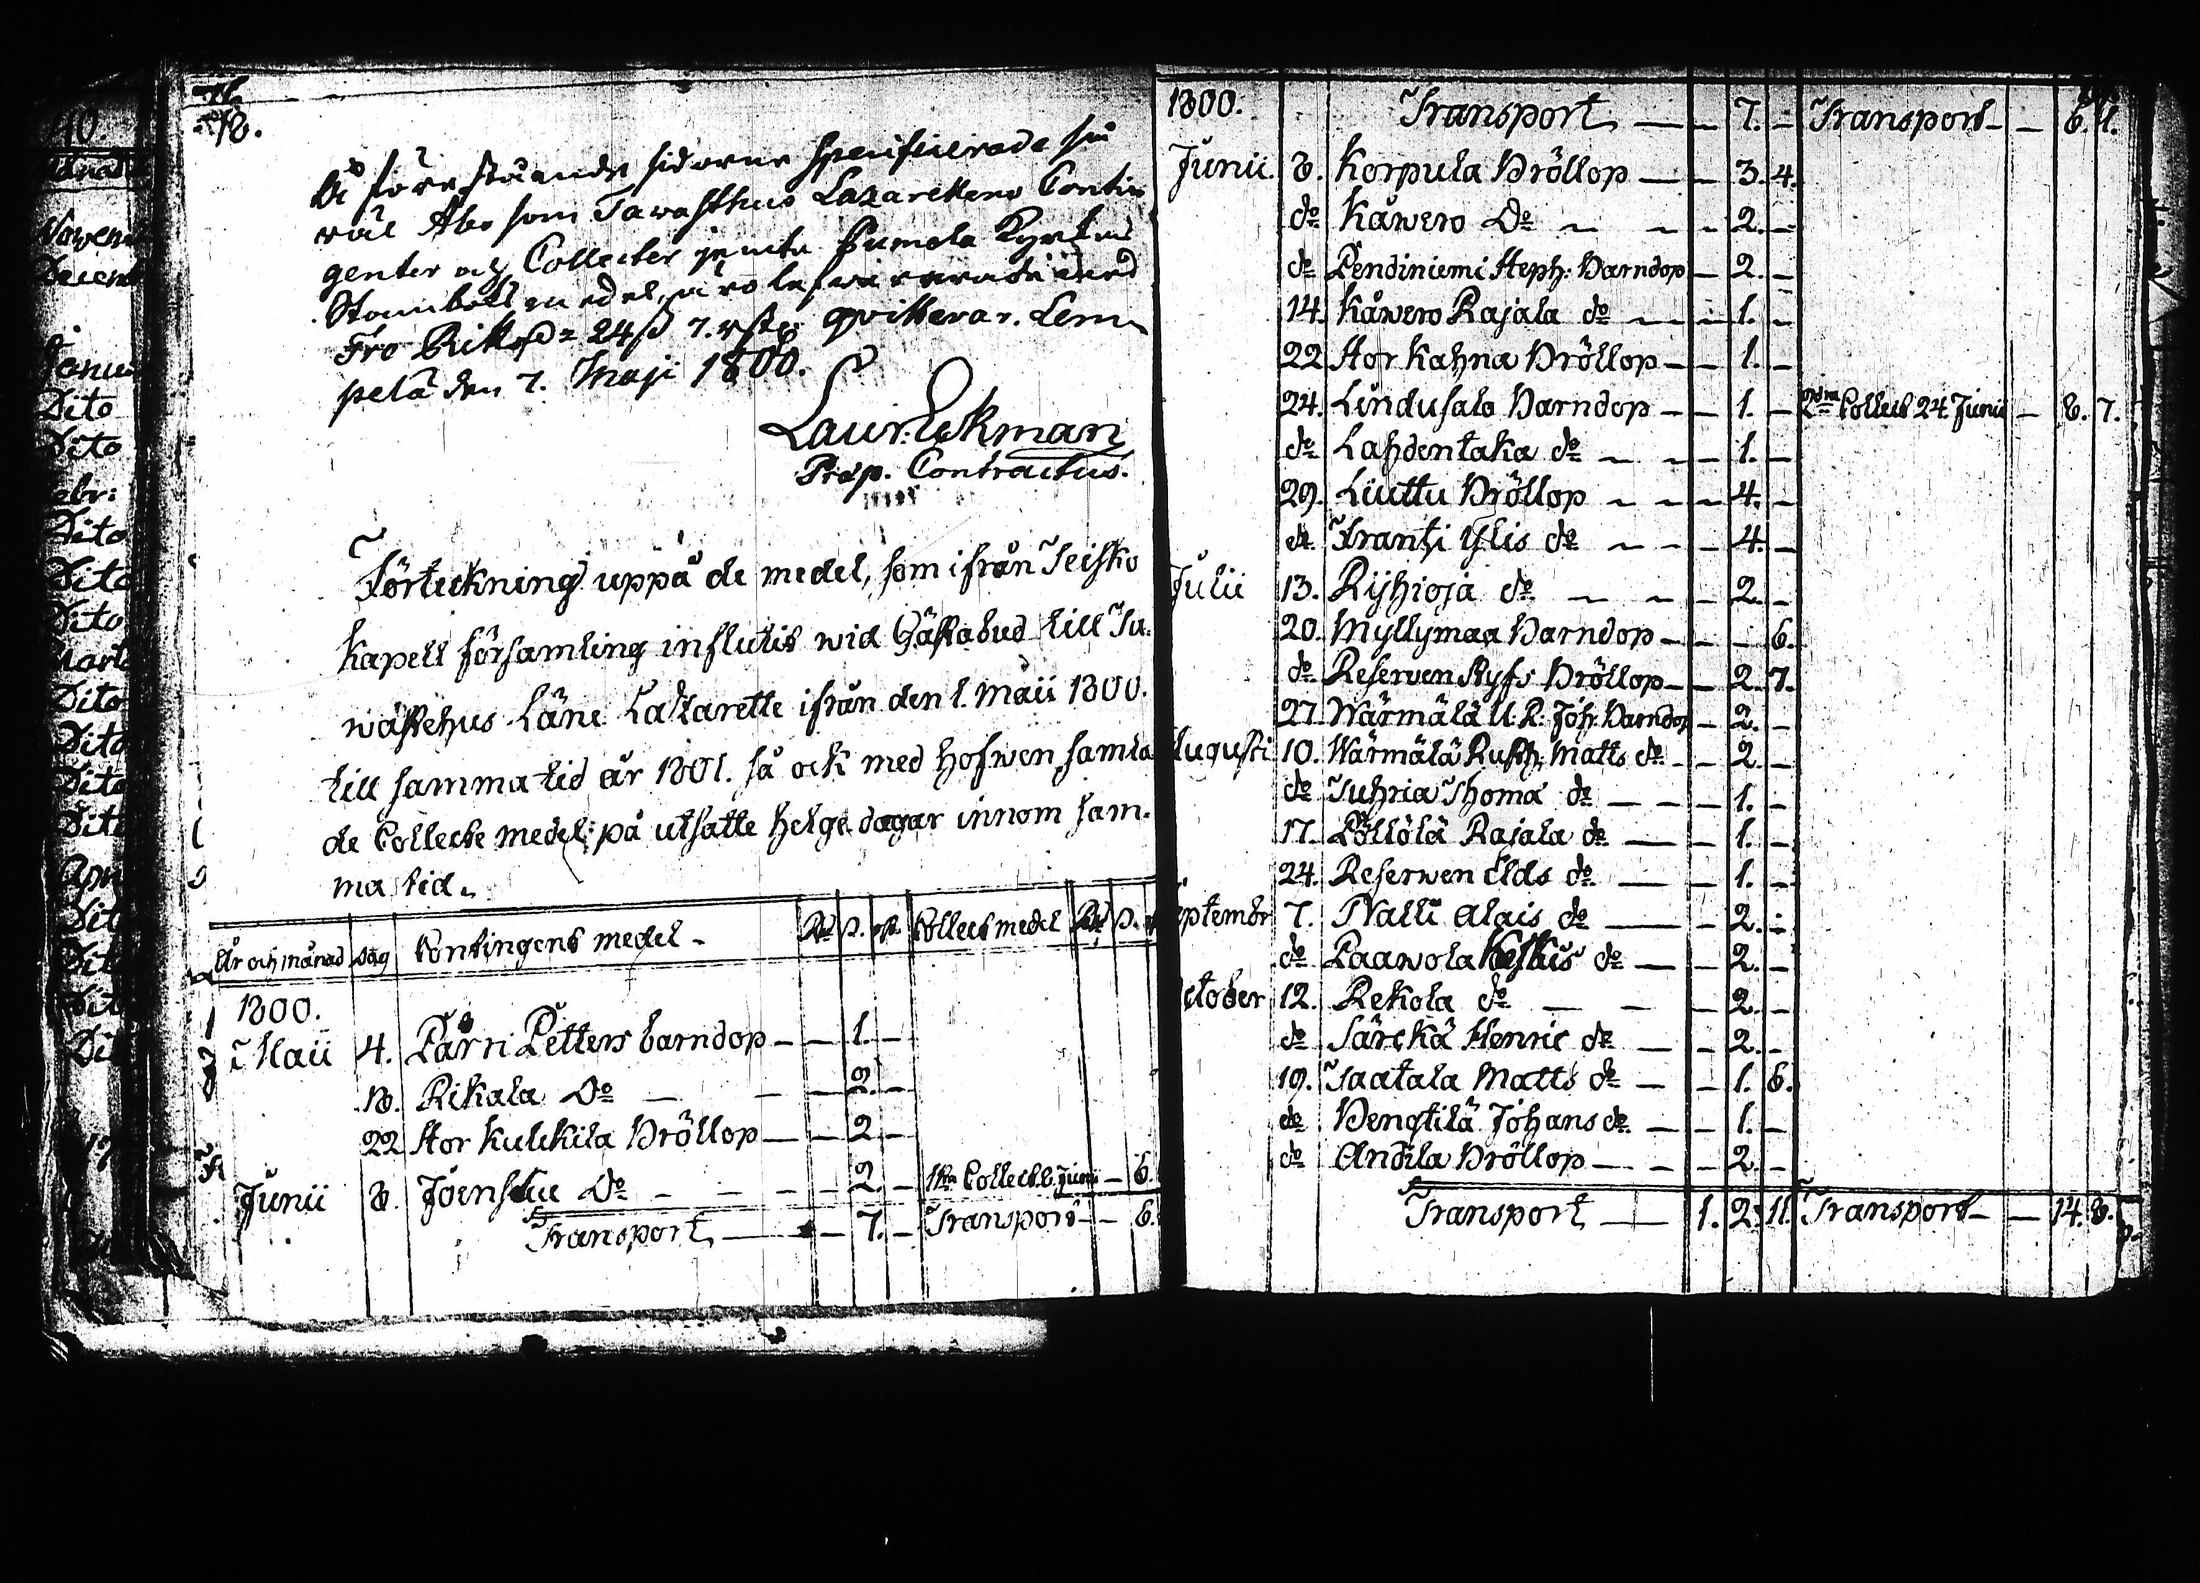 78.
På förestående sidorne specificerade så
wäl Åbo som Tawasthus Lazarettens Contin
genter och Collecter jemte Pumola Kyrkas
Stambolls medel, äro lefwererade med
Tro Riksd: 24 ß 7. rst: qvitteras. Lem
pelä den 7. Maji 1800.
Laur. Eckman
Præp. Contractus.
Förteckning uppå de medel, som ifrån Teisko
Kapell församling influtit wid Gästabud till Ta-
wastehus Läns Lazarette ifrån den 1. Maii 1800.
till samma tid år 1801. så ock med Hofwen samla
de Collecte medel på utsatte helge dagar innom sam-
ma tid.
År och månad Dag Contingent medel Rd ß. rst. Collect medel Rd ß.
1800.
Maii 4. Pärri Petters barndop — — 1. —
18. Rikala Do — — — 2. —
22 Stor Kulckila Bröllop — — 2 —
Junii 8. Joensuu Do — — — 2 — 1sta Collect. 6. Junii — 6.
Transport — — 7. — Transport — — 6.
1800. Transport — — 7. — Transport — — 6. 1.
Junii. 8. Korpula Bröllop — — 3. 4.
do Kåwero Do — — — 2. —
do Pendiniemi Steph: Barndop — 2. —
14. Kåwero Rajala do — — — 1. —
22 Stor Kahna Bröllop — — 1. —
24. Lindusalo Barndop — — 1. — 2dra Collect 24 Junii — 8. 7.
do Lahdentaka do — — — 1. —
29. Liuttu Bröllop — — — 4. —
do Frantsi Ylis do — — — 4. —
Julii 13. Rijhioja do — — — 2. —
20. Myllymaa Barndop — — — 6.
do Reserven Ryfs Bröllop — — 2. 7.
27. Wärmälä U. R. Joh: Barndop — 2. —
Augusti 10. Wärmälä Rusth: Matts do — — 2. —
do Tuhria Thoma do — — — 1. —
17. Pöllölä Rajala do — — 1. —
24. Reserwen Elds do — — 1. —
Septembr 7. Walli Alais do — — 2. —
do Paawola Keskis do — — 2. —
October 12. Rekola do — — — 2. —
do Särckä Henric do — — 2. —
19. Taatala Matts do — — 1. 6.
do Bengtilä Johans do — — 1. —
do Andila Bröllop — — — 2. —
Transport — — 1. 2. 11. Transport — — 14. 8.